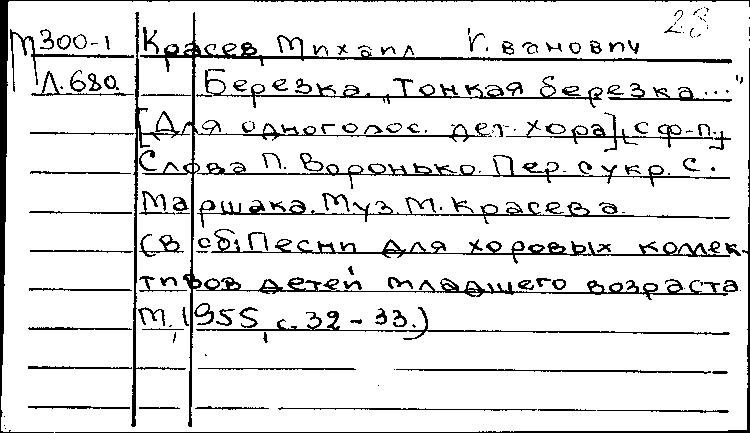 28
М300-1 Красев, Михаил Иванович
Л.680 Березка. „Тонкая березка..."
[Для одноголос. дет. хора], с ф-п.
Слова П. Воронько. Пер. с укр. С.
Маршака. Муз. М. Красева.
(в сб: Песни для хоровых коллек-
тивов детей младшего возраста
М, 1955, с. 32-33.)